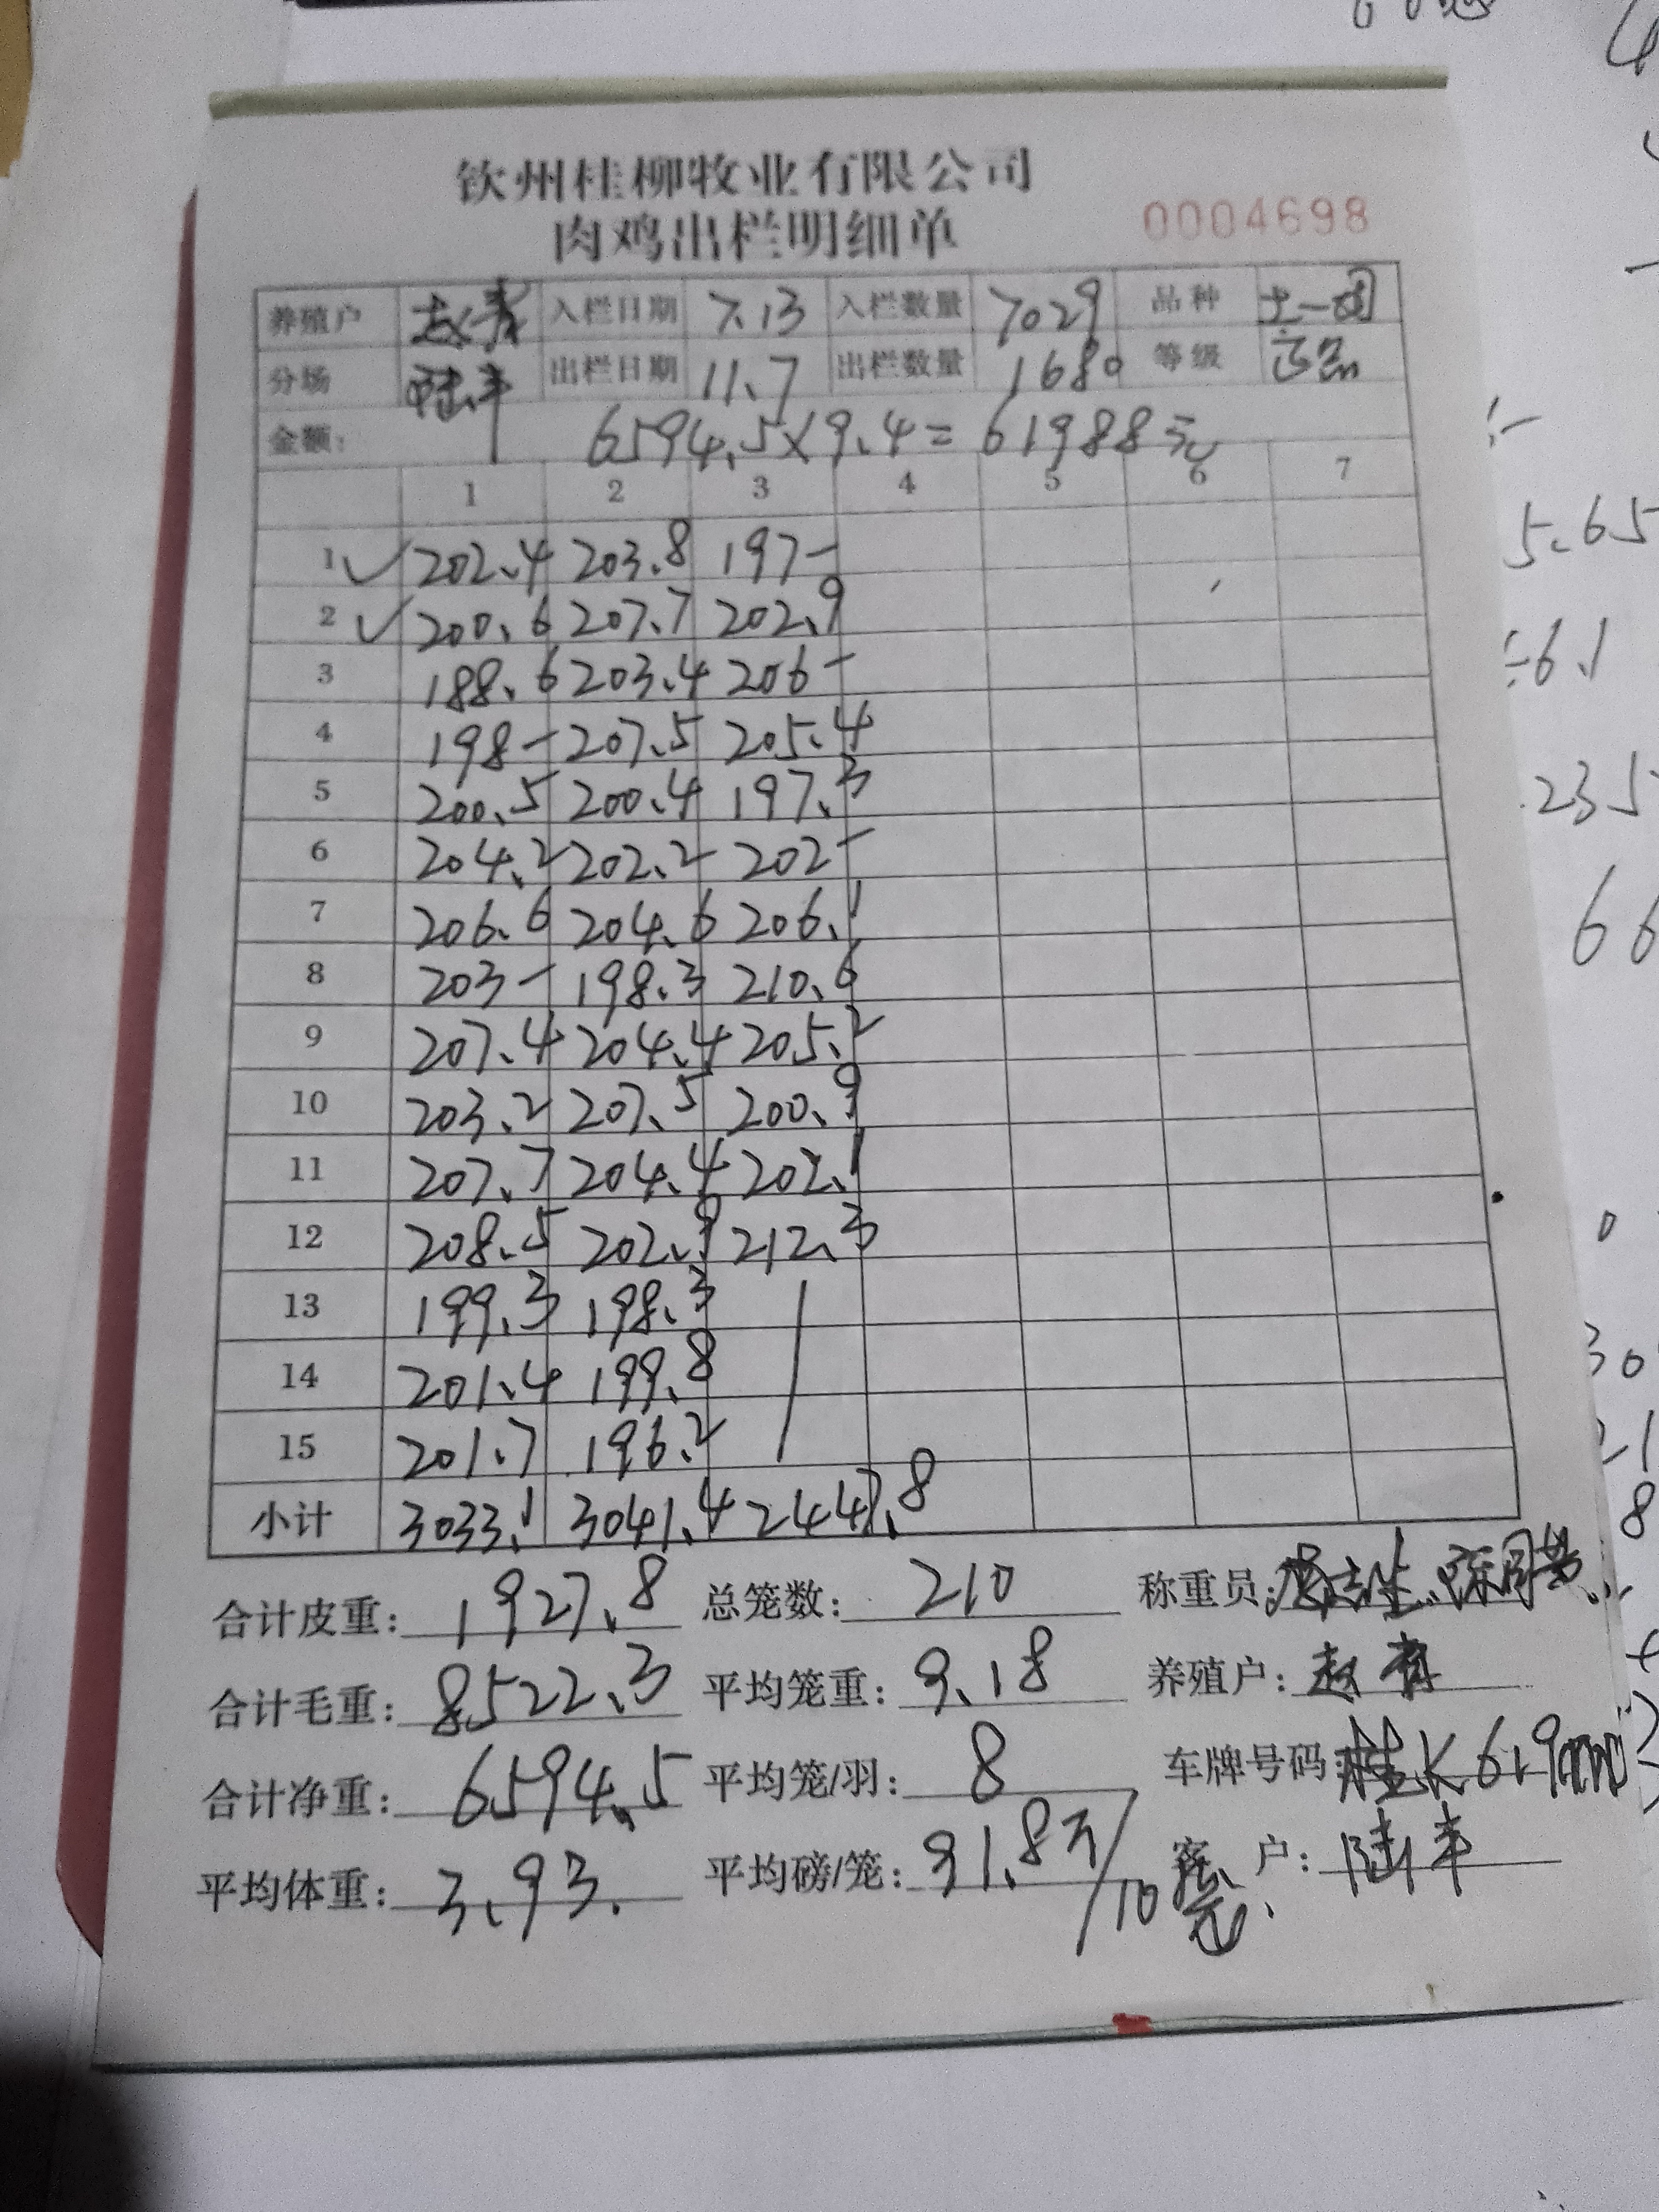 钦州桂柳牧业有限公司
肉鸡出栏明细单 0004698
养殖户 赵青 入栏日期 7.13 入栏数量 7029 品种 土一
分场 陆丰 出栏日期 11.7 出栏数量 1680 等级
金额: 6594.5×9.4=61988元
1 2 3 4 5 6 7
1 ✓ 202.4 203.8 197-
2 ✓ 200.6 207.7 202.9
3 188.6 203.4 206-
4 198- 207.5 205.4
5 200.5 200.4 197.3
6 204.2 202.2 202-
7 206.6 204.6 206.1
8 203- 198.3 210.6
9 207.4 204.4 205.2
10 203.2 207.5 200.9
11 207.7 204.4 202.1
12 208.5 202.9 212.3
13 199.3 198.3
14 201.4 199.8
15 201.7 196.2
小计 3033.1 3041.4 2447.8
合计皮重: 1927.8 总笼数: 210 称重员:
合计毛重: 8522.3 平均笼重: 9.18 养殖户: 赵青
合计净重: 6594.5 平均笼/羽: 8 车牌号码:
平均体重: 3.93. 平均磅/笼: 91.8斤/10 客户: 陆丰
5.65
6.1
235
66
0
30
21
8